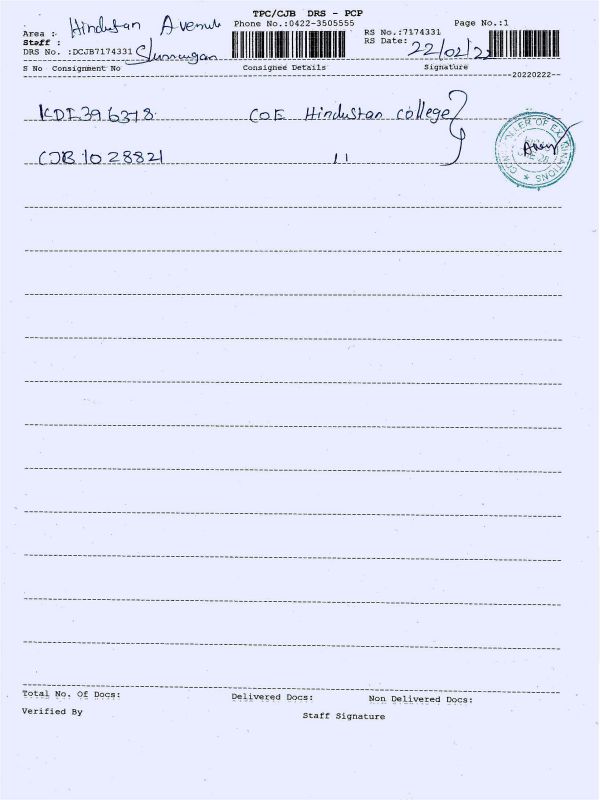 TPC/CJB DRS - PCP
Area : Hindustan Avenue Phone No.:0422-3505555 RS No.:7174331 Page No.:1
Staff :
DRS No. :DCJB7174331 RS Date: 22/02/22
S No Consignment No Consignee Details Signature
--20220222--
KDI396378 COE Hindustan college
CJB1028821 11
CONTROLLER OF EXAMINATIONS
Total No. Of Docs: Delivered Docs: Non Delivered Docs:
Verified By Staff Signature